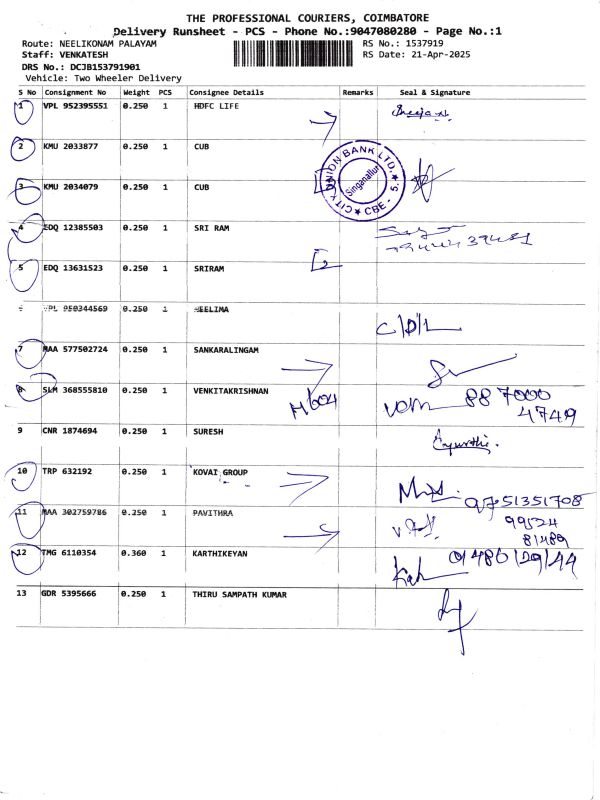 THE PROFESSIONAL COURIERS, COIMBATORE
Delivery Runsheet - PCS - Phone No.:9047080280 - Page No.:1
Route: NEELIKONAM PALAYAM RS No.: 1537919
Staff: VENKATESH RS Date: 21-Apr-2025
DRS No.: DCJB153791901
Vehicle: Two Wheeler Delivery
S No Consignment No Weight PCS Consignee Details Remarks Seal & Signature
1 VPL 952395551 0.250 1 HDFC LIFE
2 KMU 2033877 0.250 1 CUB
CITY UNION BANK LTD. Singanallur CBE - 5.
3 KMU 2034079 0.250 1 CUB
4 EDQ 12385503 0.250 1 SRI RAM
5 EDQ 13631523 0.250 1 SRIRAM
VPL 950344569 0.250 1 NEELIMA
C/D/L
7 MAA 577502724 0.250 1 SANKARALINGAM
8 SLM 368555810 0.250 1 VENKITAKRISHNAN 887000
4749
9 CNR 1874694 0.250 1 SURESH
10 TRP 632192 0.250 1 KOVAI GROUP
9751351708
11 MAA 302759786 0.250 1 PAVITHRA 99524
81489
12 TMG 6110354 0.360 1 KARTHIKEYAN
13 GDR 5395666 0.250 1 THIRU SAMPATH KUMAR